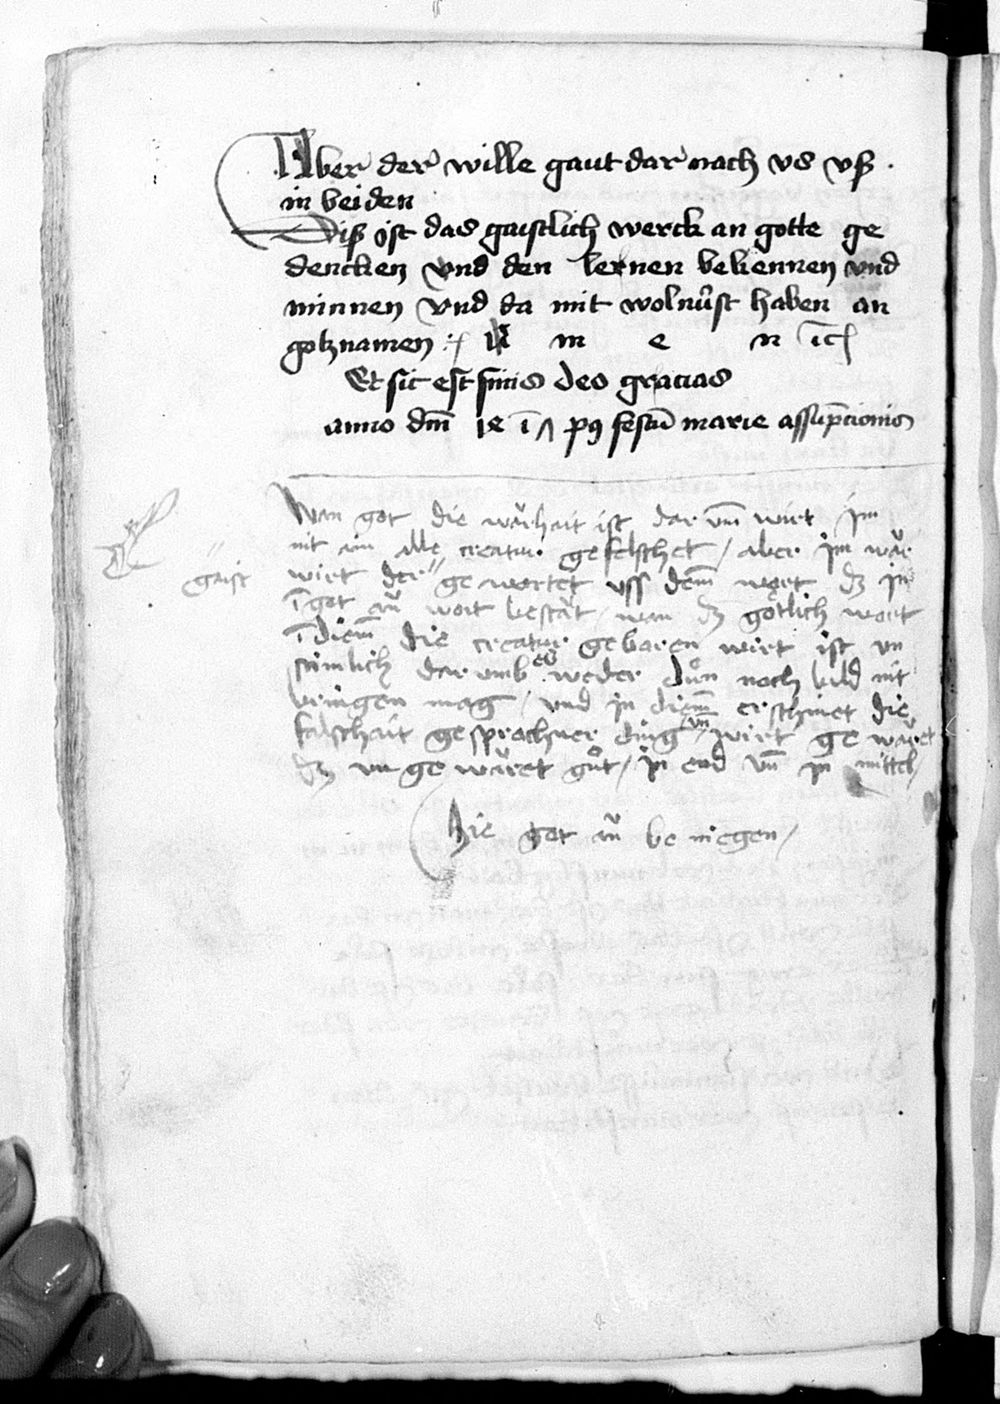 Aber der wille gaut dar nach vs vß
in beiden
Diß ist das gaistlich werck an gotte ge
dencken vnd den lernen bekennen vnd
minnen vnd da mit wolnuſt haben an
gotznamen A m e n
Et sic est finis deo gracias
anno dm̄ festū marie assūpcionis
Wan got die warhait ist dar vm̄ wirt im
nit ain alle creatur gefelschet / aber im war
gaist
wirt der gewortet vss dem wort dz in
got wort bestat / wan dz gotlich wort
die creatur geboren wirt ist vn
sinlich dar umb es weder don noch bild nit
bringen mag / vnd in erschinet die
falschait gesprochner ding / vn̄ wirt ge wäret
dz vn ge wäret gůt / in end vn̄ in mittel /
Hie got be niegen /